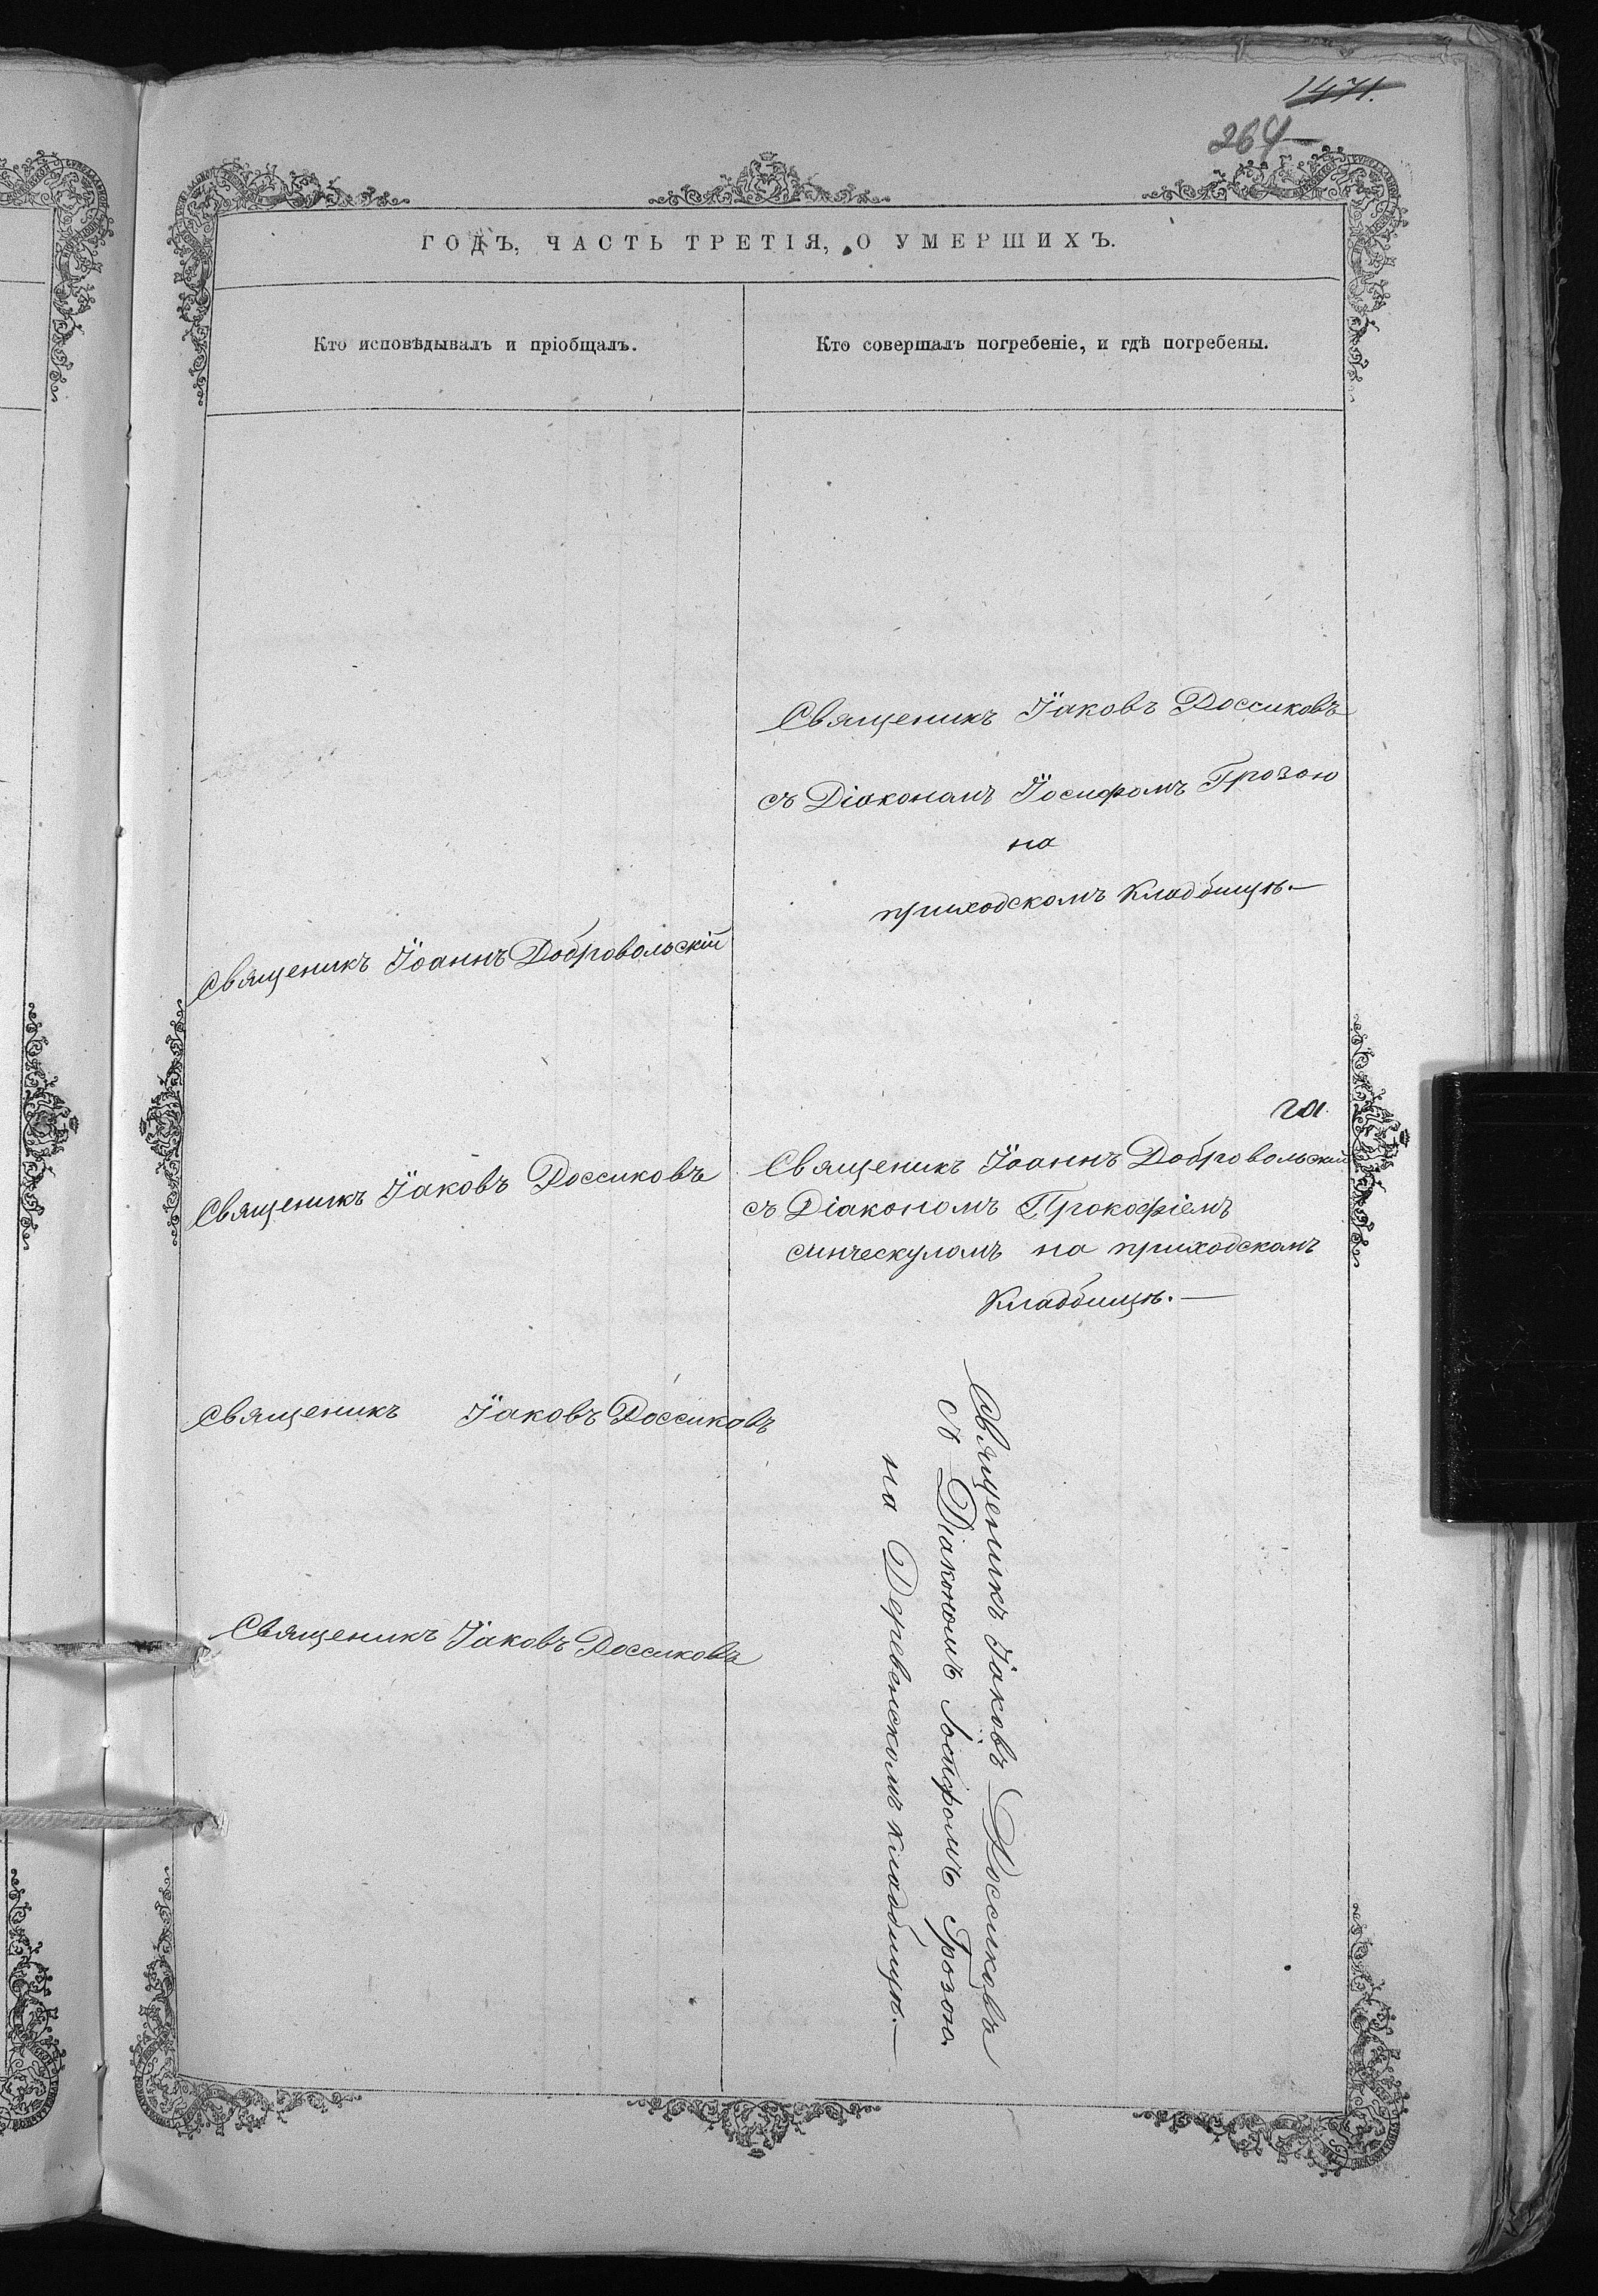 1471.
264
ГОДЪ, ЧАСТЬ ТРЕТІЯ, О УМЕРШИХЪ.
Кто исповѣдывалъ и пріобщалъ.
Кто совершалъ погребеніе, и гдѣ погребены.
Священикъ Іаковъ Россиковъ
съ Діакономъ Іосифомъ Грозою
на
приходскомъ Кладбищѣ.—
Священикъ Іоаннъ Добровольскій
Священикъ Іаковъ Россиковъ
Священикъ Іоаннъ Добровольскій
съ Діакономъ Прокофіемъ
на приходскомъ
Кладбищѣ.—
Священикъ Іаковъ Россиковъ
Священикъ Іаковъ Россиковъ
Священикъ Іаковъ Россиковъ
съ Діакономъ Іосифомъ Грозою
на Деревенскомъ кладбищѣ.—